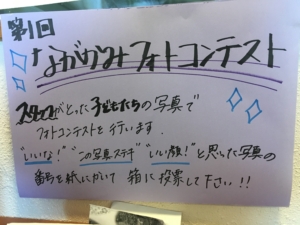 第1回
ながめみフォトコンテスト
スタッフがとった子どもたちの写真で
フォトコンテストを行います.
"いいな!" "この写真ステキ" "いい顔!" と思った写真の
番号を紙にかいて 箱に投票して下さい!!